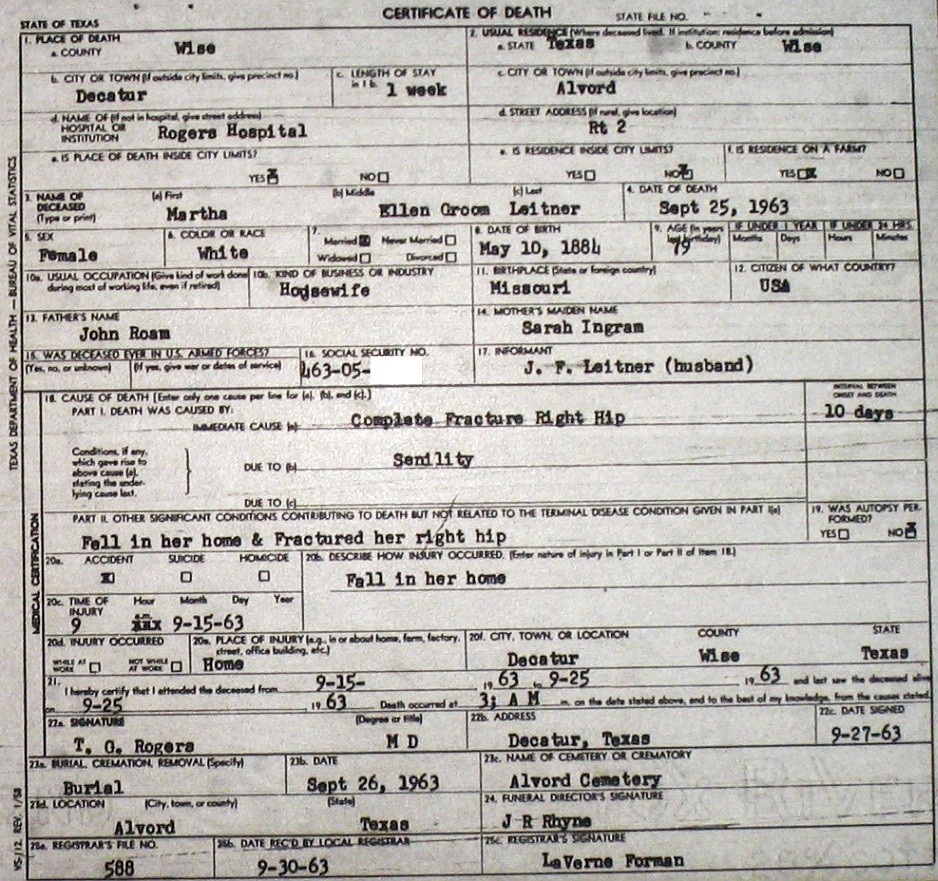 CERTIFICATE OF DEATH
STATE OF TEXAS STATE FILE NO.
1. PLACE OF DEATH 2. USUAL RESIDENCE (Where deceased lived. If institution: residence before admission)
a. COUNTY Wise a. STATE Texas b. COUNTY Wise
b. CITY OR TOWN (If outside city limits, give precinct no.) c. LENGTH OF STAY in 1 b. c. CITY OR TOWN (If outside city limits, give precinct no.)
Decatur 1 week Alvord
d. NAME OF (If not in hospital, give street address) d. STREET ADDRESS (If rural, give location)
HOSPITAL OR INSTITUTION Rogers Hospital Rt 2
e. IS PLACE OF DEATH INSIDE CITY LIMITS? e. IS RESIDENCE INSIDE CITY LIMITS? f. IS RESIDENCE ON A FARM?
YES NO YES NO YES NO
3. NAME OF DECEASED (a) First (b) Middle (c) Last 4. DATE OF DEATH
(Type or print) Martha Ellen Groom Leitner Sept 25, 1963
5. SEX 6. COLOR OR RACE 7. Married Never Married 8. DATE OF BIRTH 9. AGE (In years last birthday) IF UNDER 1 YEAR IF UNDER 24 HRS.
Female White Widowed Divorced May 10, 1884 79 Months Days Hours Minutes
10a. USUAL OCCUPATION (Give kind of work done 10b. KIND OF BUSINESS OR INDUSTRY 11. BIRTHPLACE (State or foreign country) 12. CITIZEN OF WHAT COUNTRY?
during most of working life, even if retired) Housewife Missouri USA
13. FATHER'S NAME 14. MOTHER'S MAIDEN NAME
John Roam Sarah Ingram
15. WAS DECEASED EVER IN U.S. ARMED FORCES? 16. SOCIAL SECURITY NO. 17. INFORMANT
(Yes, no, or unknown) (If yes, give war or dates of service) 463-05- J. F. Leitner (husband)
18. CAUSE OF DEATH [Enter only one cause per line for (a), (b), and (c).] INTERVAL BETWEEN ONSET AND DEATH
PART I. DEATH WAS CAUSED BY:
IMMEDIATE CAUSE (a) Complete Fracture Right Hip 10 days
Conditions, if any, which gave rise to above cause (a), stating the underlying cause last.
DUE TO (b) Senility
DUE TO (c)
PART II. OTHER SIGNIFICANT CONDITIONS CONTRIBUTING TO DEATH BUT NOT RELATED TO THE TERMINAL DISEASE CONDITION GIVEN IN PART I(a) 19. WAS AUTOPSY PERFORMED?
Fell in her home & Fractured her right hip YES NO
20a. ACCIDENT SUICIDE HOMICIDE 20b. DESCRIBE HOW INJURY OCCURRED. (Enter nature of injury in Part I or Part II of Item 18.)
Fall in her home
20c. TIME OF INJURY Hour Month Day Year
9 a.m. 9-15-63
20d. INJURY OCCURRED 20e. PLACE OF INJURY (e.g., in or about home, farm, factory, street, office building, etc.) 20f. CITY, TOWN, OR LOCATION COUNTY STATE
WHILE AT WORK NOT WHILE AT WORK Home Decatur Wise Texas
21. I hereby certify that I attended the deceased from 9-15- 19 63 to 9-25 19 63 and last saw the deceased alive
on 9-25 19 63 Death occurred at 3; A M m. on the date stated above, and to the best of my knowledge, from the causes stated.
22a. SIGNATURE (Degree or title) 22b. ADDRESS 22c. DATE SIGNED
T. G. Rogers M D Decatur, Texas 9-27-63
23a. BURIAL, CREMATION, REMOVAL (Specify) 23b. DATE 23c. NAME OF CEMETERY OR CREMATORY
Burial Sept 26, 1963 Alvord Cemetery
23d. LOCATION (City, town, or county) (State) 24. FUNERAL DIRECTOR'S SIGNATURE
Alvord Texas J R Rhyne
25a. REGISTRAR'S FILE NO. 25b. DATE REC'D BY LOCAL REGISTRAR 25c. REGISTRAR'S SIGNATURE
588 9-30-63 LaVerne Forman
TEXAS DEPARTMENT OF HEALTH — BUREAU OF VITAL STATISTICS
MEDICAL CERTIFICATION
VS-12 REV. 1/58